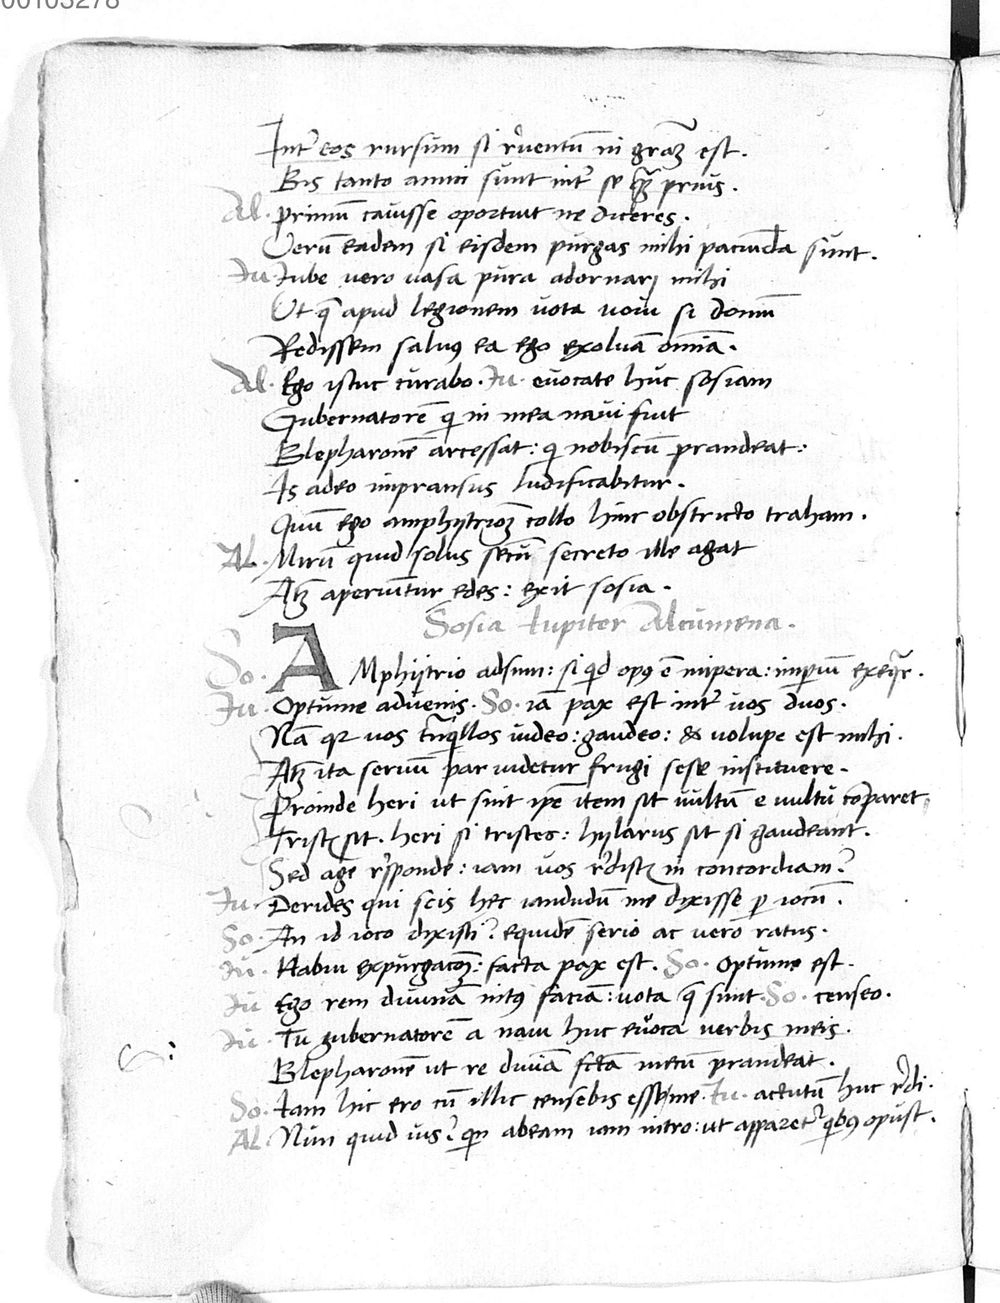 00103278
Int̃ eos rursum si r̃uentũ in grãʒ est.
Bis tanto amici sunt int̃ se q̃ʒ prius.
Al. Primũ cauisse oportuit ne diceres.
Uerũ eadem si eisdem purgas mihi patiũda sunt.
Iu. Iube vero uasa pura adornarj mihi
Ut q̃ apud legionem uota uoui si domũ
Redissem saluꝰ ea ego exoluã omĩa.
Al. Ego istuc curabo. Iu. euocate huc sosiam
Gubernatorẽ qͥ in mea naui fuit
Blepharonẽ arcessat: qͥ nobiscũ prandeat:
Is adeo impransus ludificabitur.
Quũ ego amphitrioꝫ collo hinc obstricto traham.
Al. Mirũ quid solus secũ secreto ille agat
Atꝫ aperiũtur edes: exit sosia.
Sosia Iupiter Alcumena.
So. AMphitrio adsum: si qͥd opꝰ ẽ impera: imꝑiũ exeq̃r.
Iu. Optume aduenis. So. iã pax est int̃ uos duos.
Nã qꝛ uos trãqͥllos uideo: gaudeo: & uolupe est mihi.
Atꝫ ita seruũ par uidetur frugi sese instituere.
Proinde heri ut sint ip̃e item sit uultũ e uultu cõparet
Tristꝭ sit. heri si tristes: hylarus sit si gaudeant.
Sed age r̃sponde: iam uos r̃distꝭ in concordiam?
Iu. Derides qui scis hec iamdudũ me dixisse ꝑ iocũ.
So. An id ioco dixisti? equidẽ serio ac uero ratus.
Iu. Habui expurgacõꝫ: facta pax est. So. Optume est.
Iu. Ego rem diuinã intꝰ faciã: uota q̃ sunt. So. censeo.
Iu. Tu gubernatorẽ a naui huc euoca uerbis meis.
Blepharonẽ ut re diuĩa fctã mecũ prandeat.
So. Iam hic ero cũ illic censebis esse me. Iu. actutũ huc r̃di.
Al. Nũ quid uis? qͥn abeam iam intro: ut apparet̃ qͥbꝰ opust.